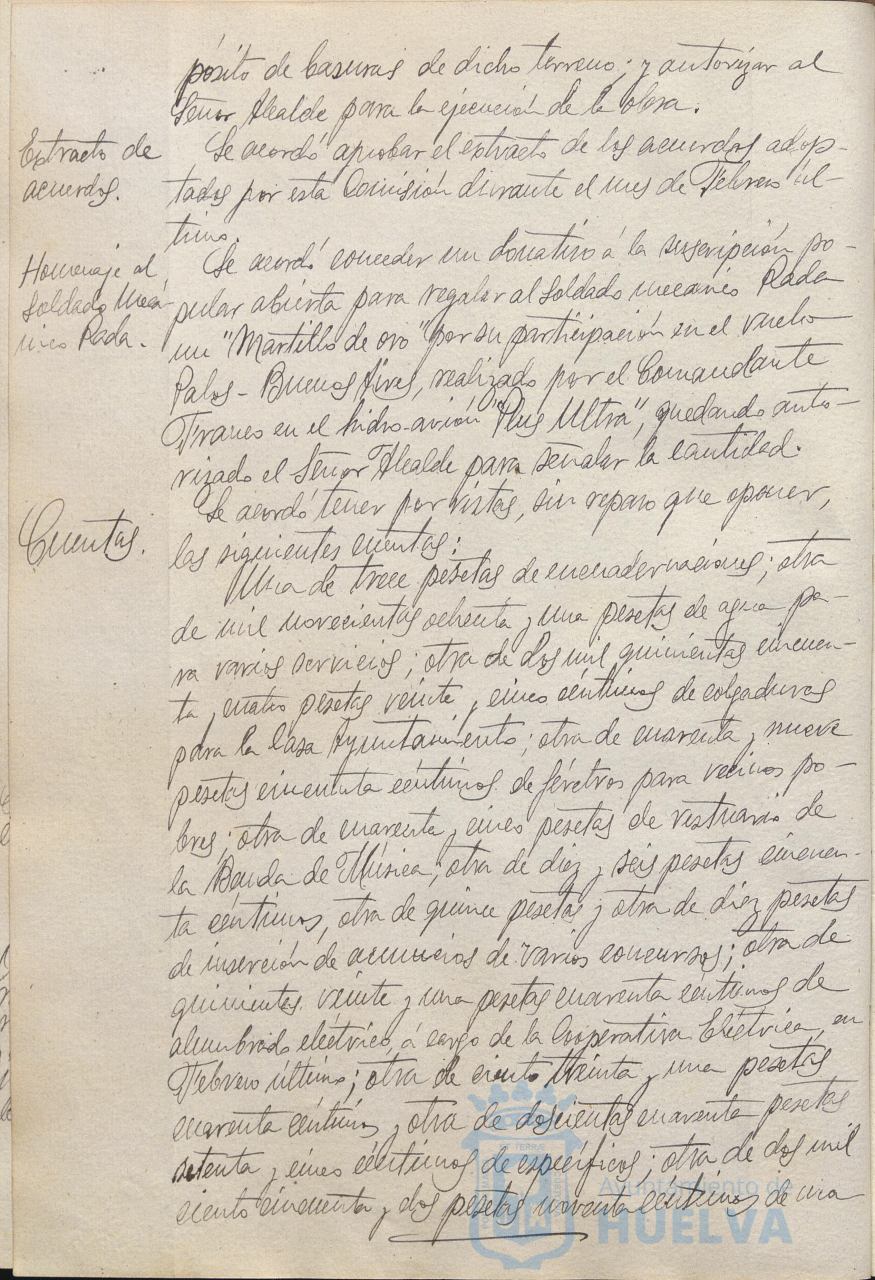 pósito de basuras de dicho terreno; y autorizar al
Señor Alcalde para la ejecución de la obra.
Extracto de
acuerdos.
Se acordó aprobar el extracto de los acuerdos adop-
tados por esta Comisión durante el mes de Febrero úl-
timo.
Homenaje al
soldado mecá-
nico Rada.
Se acordó conceder un donativo á la suscripción po-
pular abierta para regalar al soldado mecánico Rada
un "Martillo de oro" por su participación en el vuelo
Palos - Buenos Aires, realizado por el Comandante
Franco en el hidro-avión "Plus Ultra", quedando auto-
rizado el Señor Alcalde para señalar la cantidad.
Cuentas.
Se acordó tener por vistas, sin reparo que oponer,
las siguientes cuentas:
Una de trece pesetas de encuadernaciones; otra
de mil novecientas ochenta y una pesetas de agua pa-
ra varios servicios; otra de dos mil quinientas cincuen-
ta y cuatro pesetas veinte y cinco céntimos de colgaduras
para la Casa Ayuntamiento; otra de cuarenta y nueve
pesetas cincuenta céntimos de féretros para vecinos po-
bres; otra de cuarenta y cinco pesetas de vestuario de
la Banda de Música; otra de diez y seis pesetas cincuen-
ta céntimos, otra de quince pesetas y otra de diez pesetas
de inserción de anuncios de varios concursos; otra de
quinientas veinte y una pesetas cuarenta céntimos de
alumbrado eléctrico, á cargo de la Cooperativa Eléctrica, en
Febrero último; otra de ciento treinta y una pesetas
cuarenta céntimos y otra de doscientas cuarenta pesetas
setenta y cinco céntimos de específicos; otra de dos mil
ciento cincuenta y dos pesetas noventa céntimos de ma
Ayuntamiento de
HUELVA